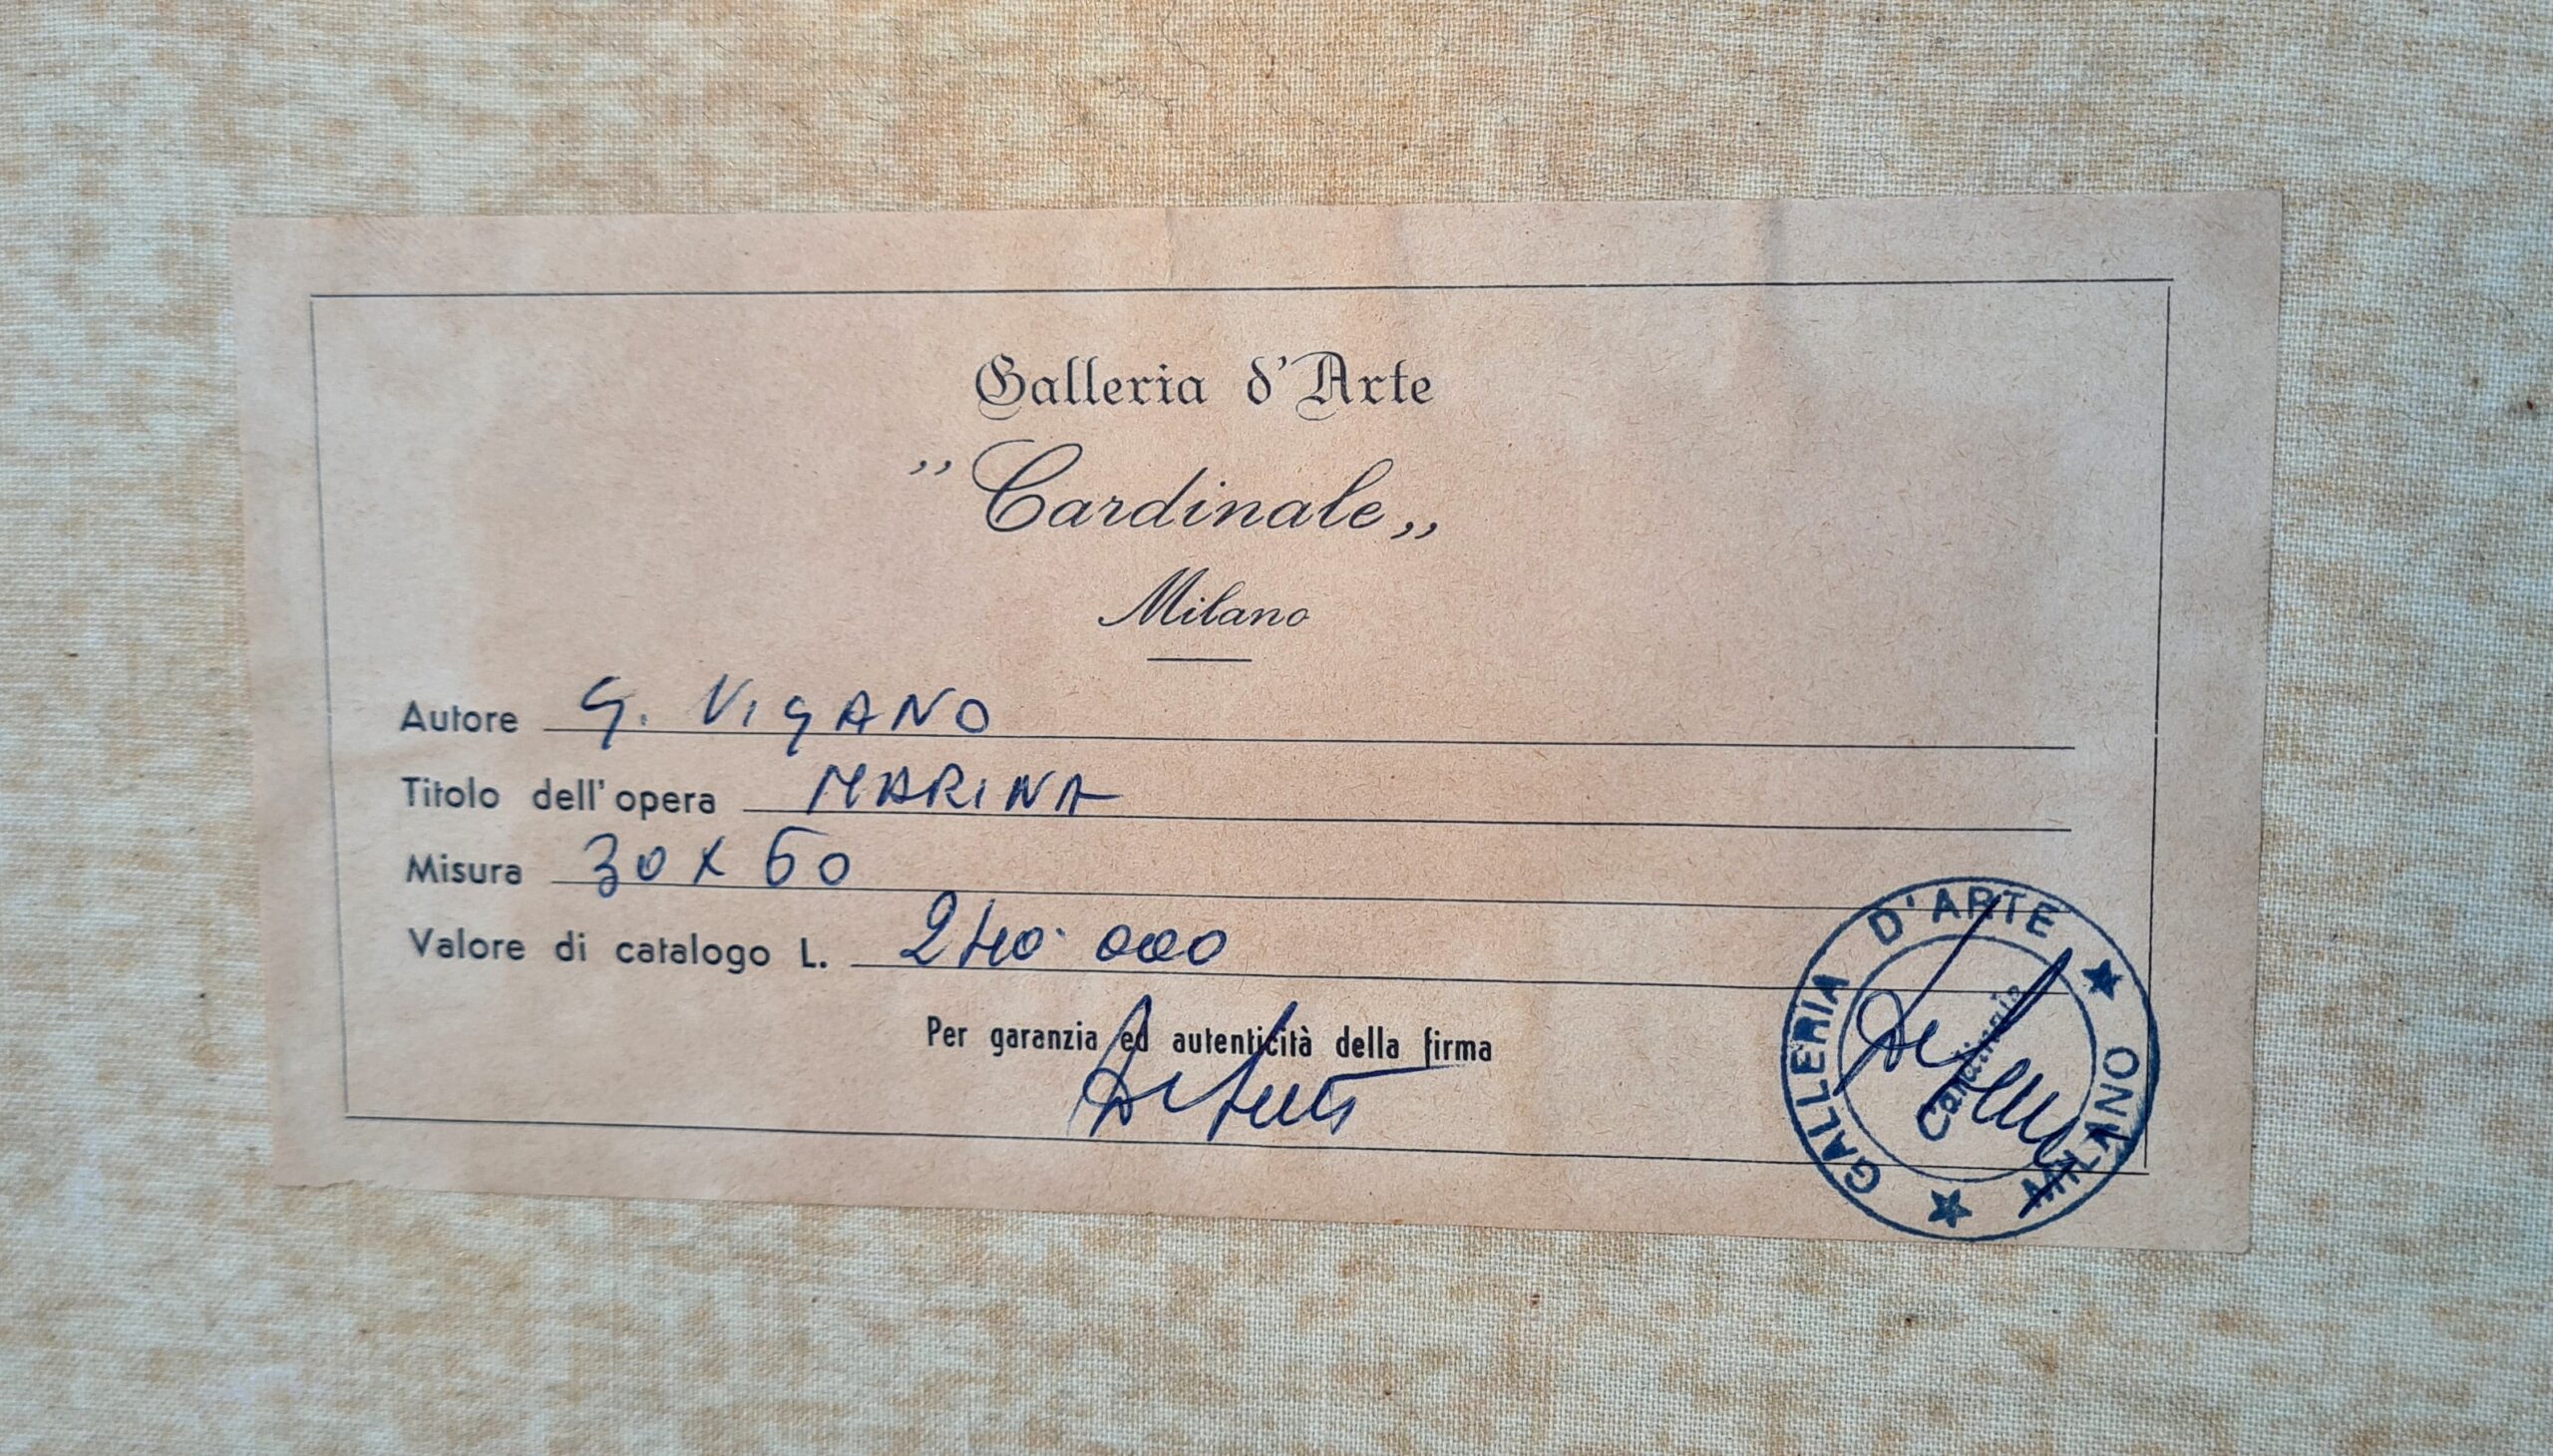 Galleria d'Arte
"Cardinale„
Milano
Autore G. VIGANO
Titolo dell'opera MARINA
Misura 30 x 60
Valore di catalogo L. 240.000
Per garanzia ed autenticità della firma
GALLERIA D'ARTE ★ MILANO ★
Cardinale